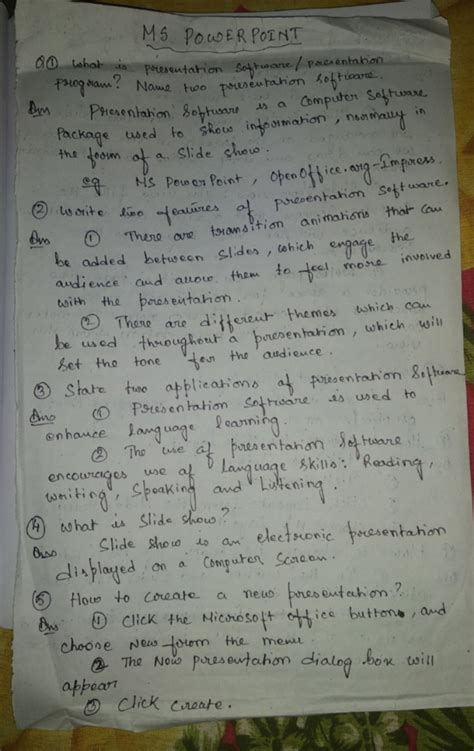 MS POWERPOINT
Q① What is presentation software/presentation
program? Name two presentation software.
Ans Presentation Software is a Computer Software
Package used to show information, normally in
the form of a Slide show.
eg MS PowerPoint, OpenOffice.org-Impress.
② Write two features of presentation software.
Ans ① There are transition animations that can
be added between slides, which engage the
audience and allow them to feel more involved
with the presentation.
② There are different themes which can
be used throughout a presentation, which will
set the tone for the audience.
③ State two applications of presentation software
Ans ① Presentation Software is used to
enhance language learning.
② The use of presentation software
encourages use of language skills: Reading,
writing, Speaking and Listening.
④ What is Slide show?
Ans Slide show is an electronic presentation
displayed on a Computer Screen.
⑤ How to create a new presentation?
Ans ① Click the Microsoft office button, and
choose New from the menu.
② The New presentation dialog box will
appear
③ Click Create.